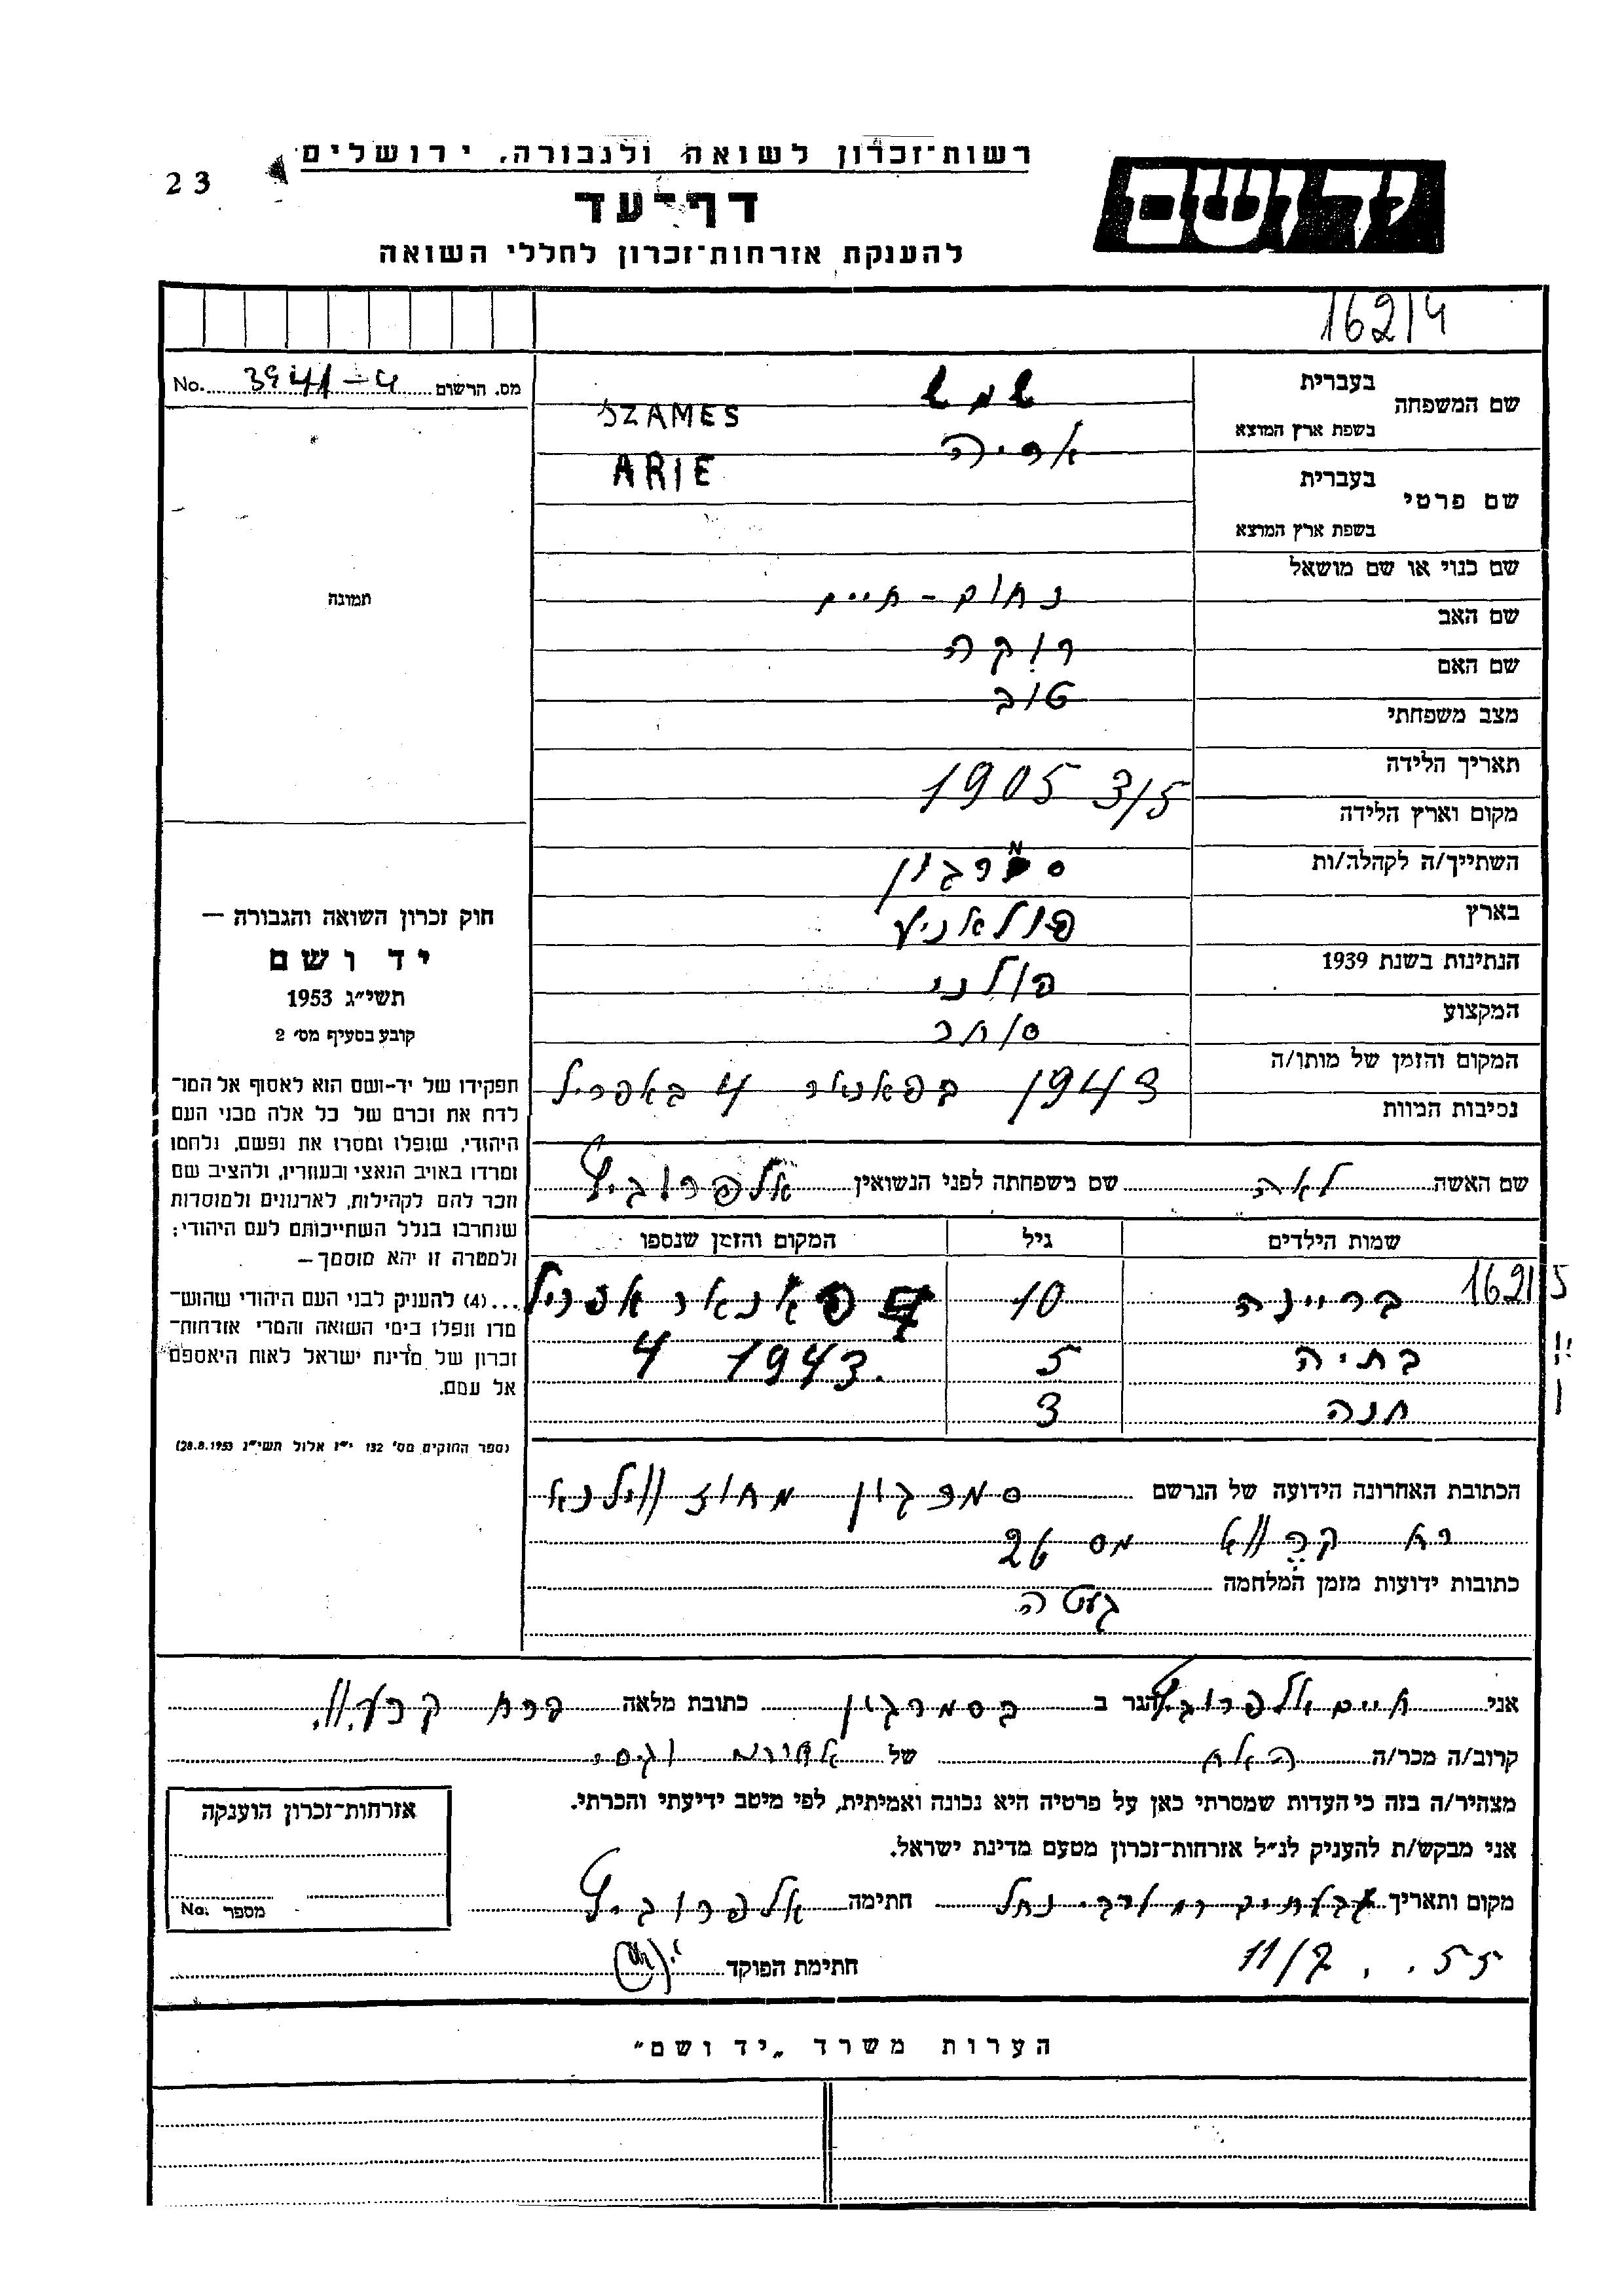 רשות־זכרון לשואה ולגבורה, ירושלים
יד ושם
23
דף־עד
להענקת אזרחות־זכרון לחללי השואה
16214
מס. הרשום 3941-4 No.
שם המשפחה
בעברית
שמש
בשפת ארץ המוצא
SZAMES
אריה
שם פרטי
בעברית
ARIE
בשפת ארץ המוצא
שם כנוי או שם מושאל
נחום - חיים
שם האב
שם האם
טוב
מצב משפחתי
תאריך הלידה
1905 3/5
מקום וארץ הלידה
השתייך/ה לקהלה/ות
סמרגון
בארץ
הנתינות בשנת 1939
פולני
המקצוע
סוחר
המקום והזמן של מותו/ה
1943 בפאנאר 4 באפריל
נסיבות המוות
תמונה
חוק זכרון השואה והגבורה —
יד ושם
תשי״ג 1953
קובע בסעיף מס׳ 2
תפקידו של יד-ושם הוא לאסוף אל המו־
לדת את זכרם של כל אלה מבני העם
היהודי, שנפלו ומסרו את נפשם, נלחמו
ומרדו באויב הנאצי ובעוזריו, ולהציב שם
וזכר להם לקהילות, לארגונים ולמוסדות
שנחרבו בגלל השתייכותם לעם היהודי;
ולמטרה זו יהא מוסמך —
...(4) להעניק לבני העם היהודי שהוש־
מדו ונפלו בימי השואה והמרי אזרחות־
זכרון של מדינת ישראל לאות היאספם
אל עמם.
(ספר החוקים מס׳ 132 י״ז אלול תשי״ג 28.8.1953)
שם האשה לאה שם משפחתה לפני הנשואין אלפרוביץ
שמות הילדים גיל המקום והזמן שנספו
16215 בריינה 10 פאנאר אפריל
בתיה 5 1943 4
חנה 3
הכתובת האחרונה הידועה של הנרשם סמרגון מחוז ווילנא
מס 26
כתובות ידועות מזמן המלחמה
געטה
אני חיים אלפרוביץ הגר ב בסמרגון כתובת מלאה
קרוב/ה מכר/ה של
מצהיר/ה בזה כי העדות שמסרתי כאן על פרטיה היא נכונה ואמיתית, לפי מיטב ידיעתי והכרתי.
אני מבקש/ת להעניק לנ״ל אזרחות־זכרון מטעם מדינת ישראל.
מקום ותאריך חתימה אלפרוביץ
11/7 55
חתימת הפוקד
אזרחות־זכרון הוענקה
מספר No.
הערות משרד „יד ושם״